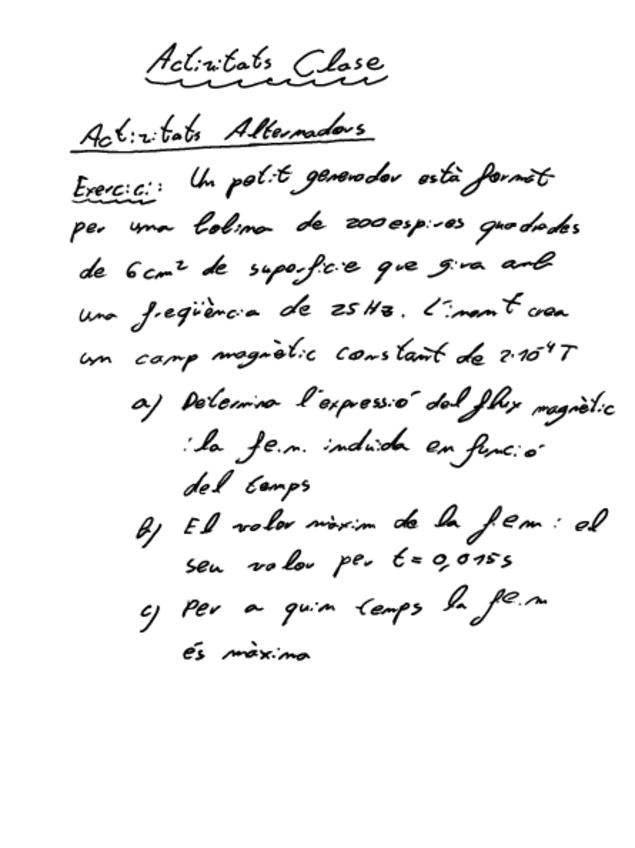 Activitats Clase
Activitats Alternadors
Exercici: Un petit generador està format
per una bobina de 200 espires quadrades
de 6 cm² de superficie que gira amb
una freqüència de 25 Hz. L'imant crea
un camp magnètic constant de 2·10⁻⁴ T
a) Determina l'expressió del flux magnètic
i la f.e.m. induida en funció
del temps
b) El valor màxim de la f.e.m i el
seu valor per t = 0,015 s
c) Per a quin temps la f.e.m
és màxima